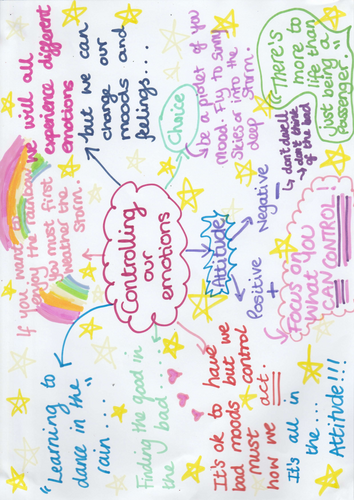 we will all
experience different
emotions
but we can
change our
moods and
feelings....
Choice
be a piolet of you
Mood. Fly to sunny
Skies or into the
deep
Storm.
"There's
more to
life than
just being
a
Passenger."
If you want to
enjoy the rainbow
you must first
weather the
Storm..
Controlling
our
emotions
Attitude
Negative -
don't dwell
of the bad
Positive
+
Focus on what
you
CAN CONTROL!
"Learning to
dance in the
rain....."
Finding the good in
the bad....
It's ok to have
bad moods but we
must control
how we act.
It's all in
the.... Attitude!!!